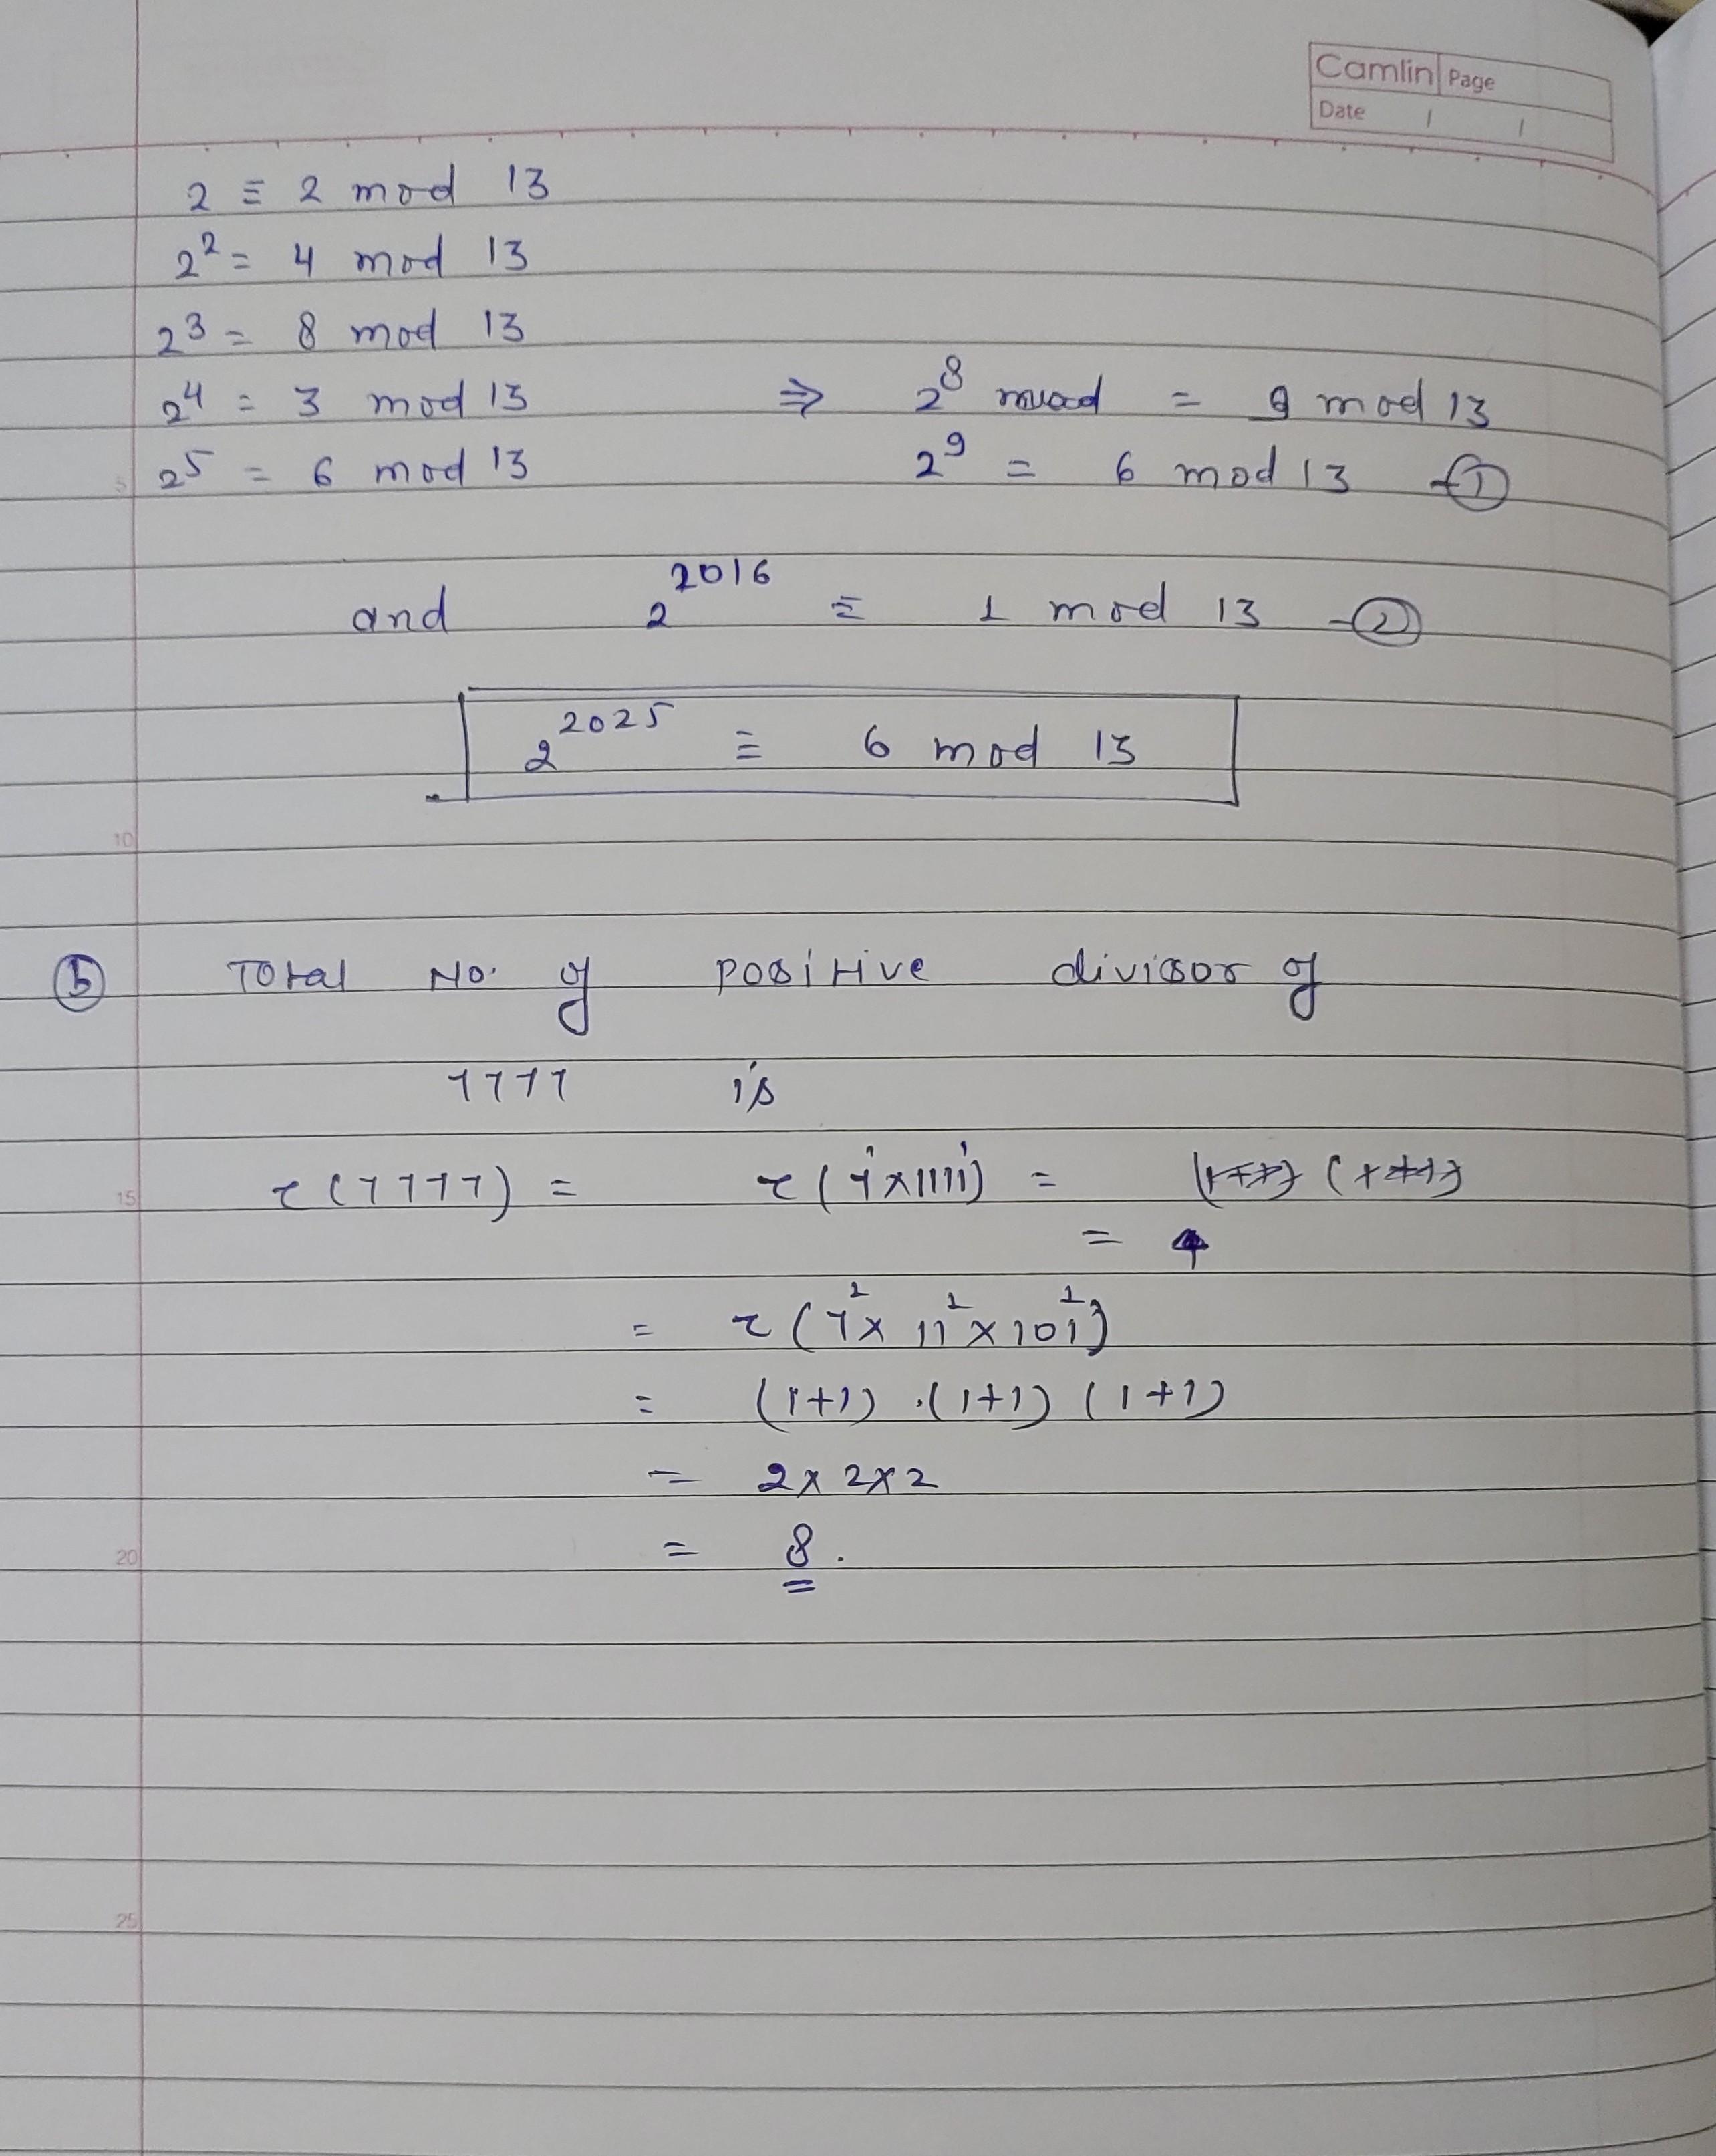 Camlin Page
Date / /
2 ≡ 2 mod 13
2² = 4 mod 13
2³ = 8 mod 13
2⁴ = 3 mod 13 ⇒ 2⁸ = 9 mod 13
2⁵ = 6 mod 13 2⁹ = 6 mod 13 -①
5
and 2²⁰¹⁶ ≡ 1 mod 13 -②
2²⁰²⁵ ≡ 6 mod 13
10
⑤ Total No. of positive divisor of
7777 is
15 τ(7777) = τ(7¹×1111¹) =
= 4
= τ(7¹× 11¹×101¹)
= (1+1) .(1+1) (1+1)
= 2×2×2
20 = 8.
25